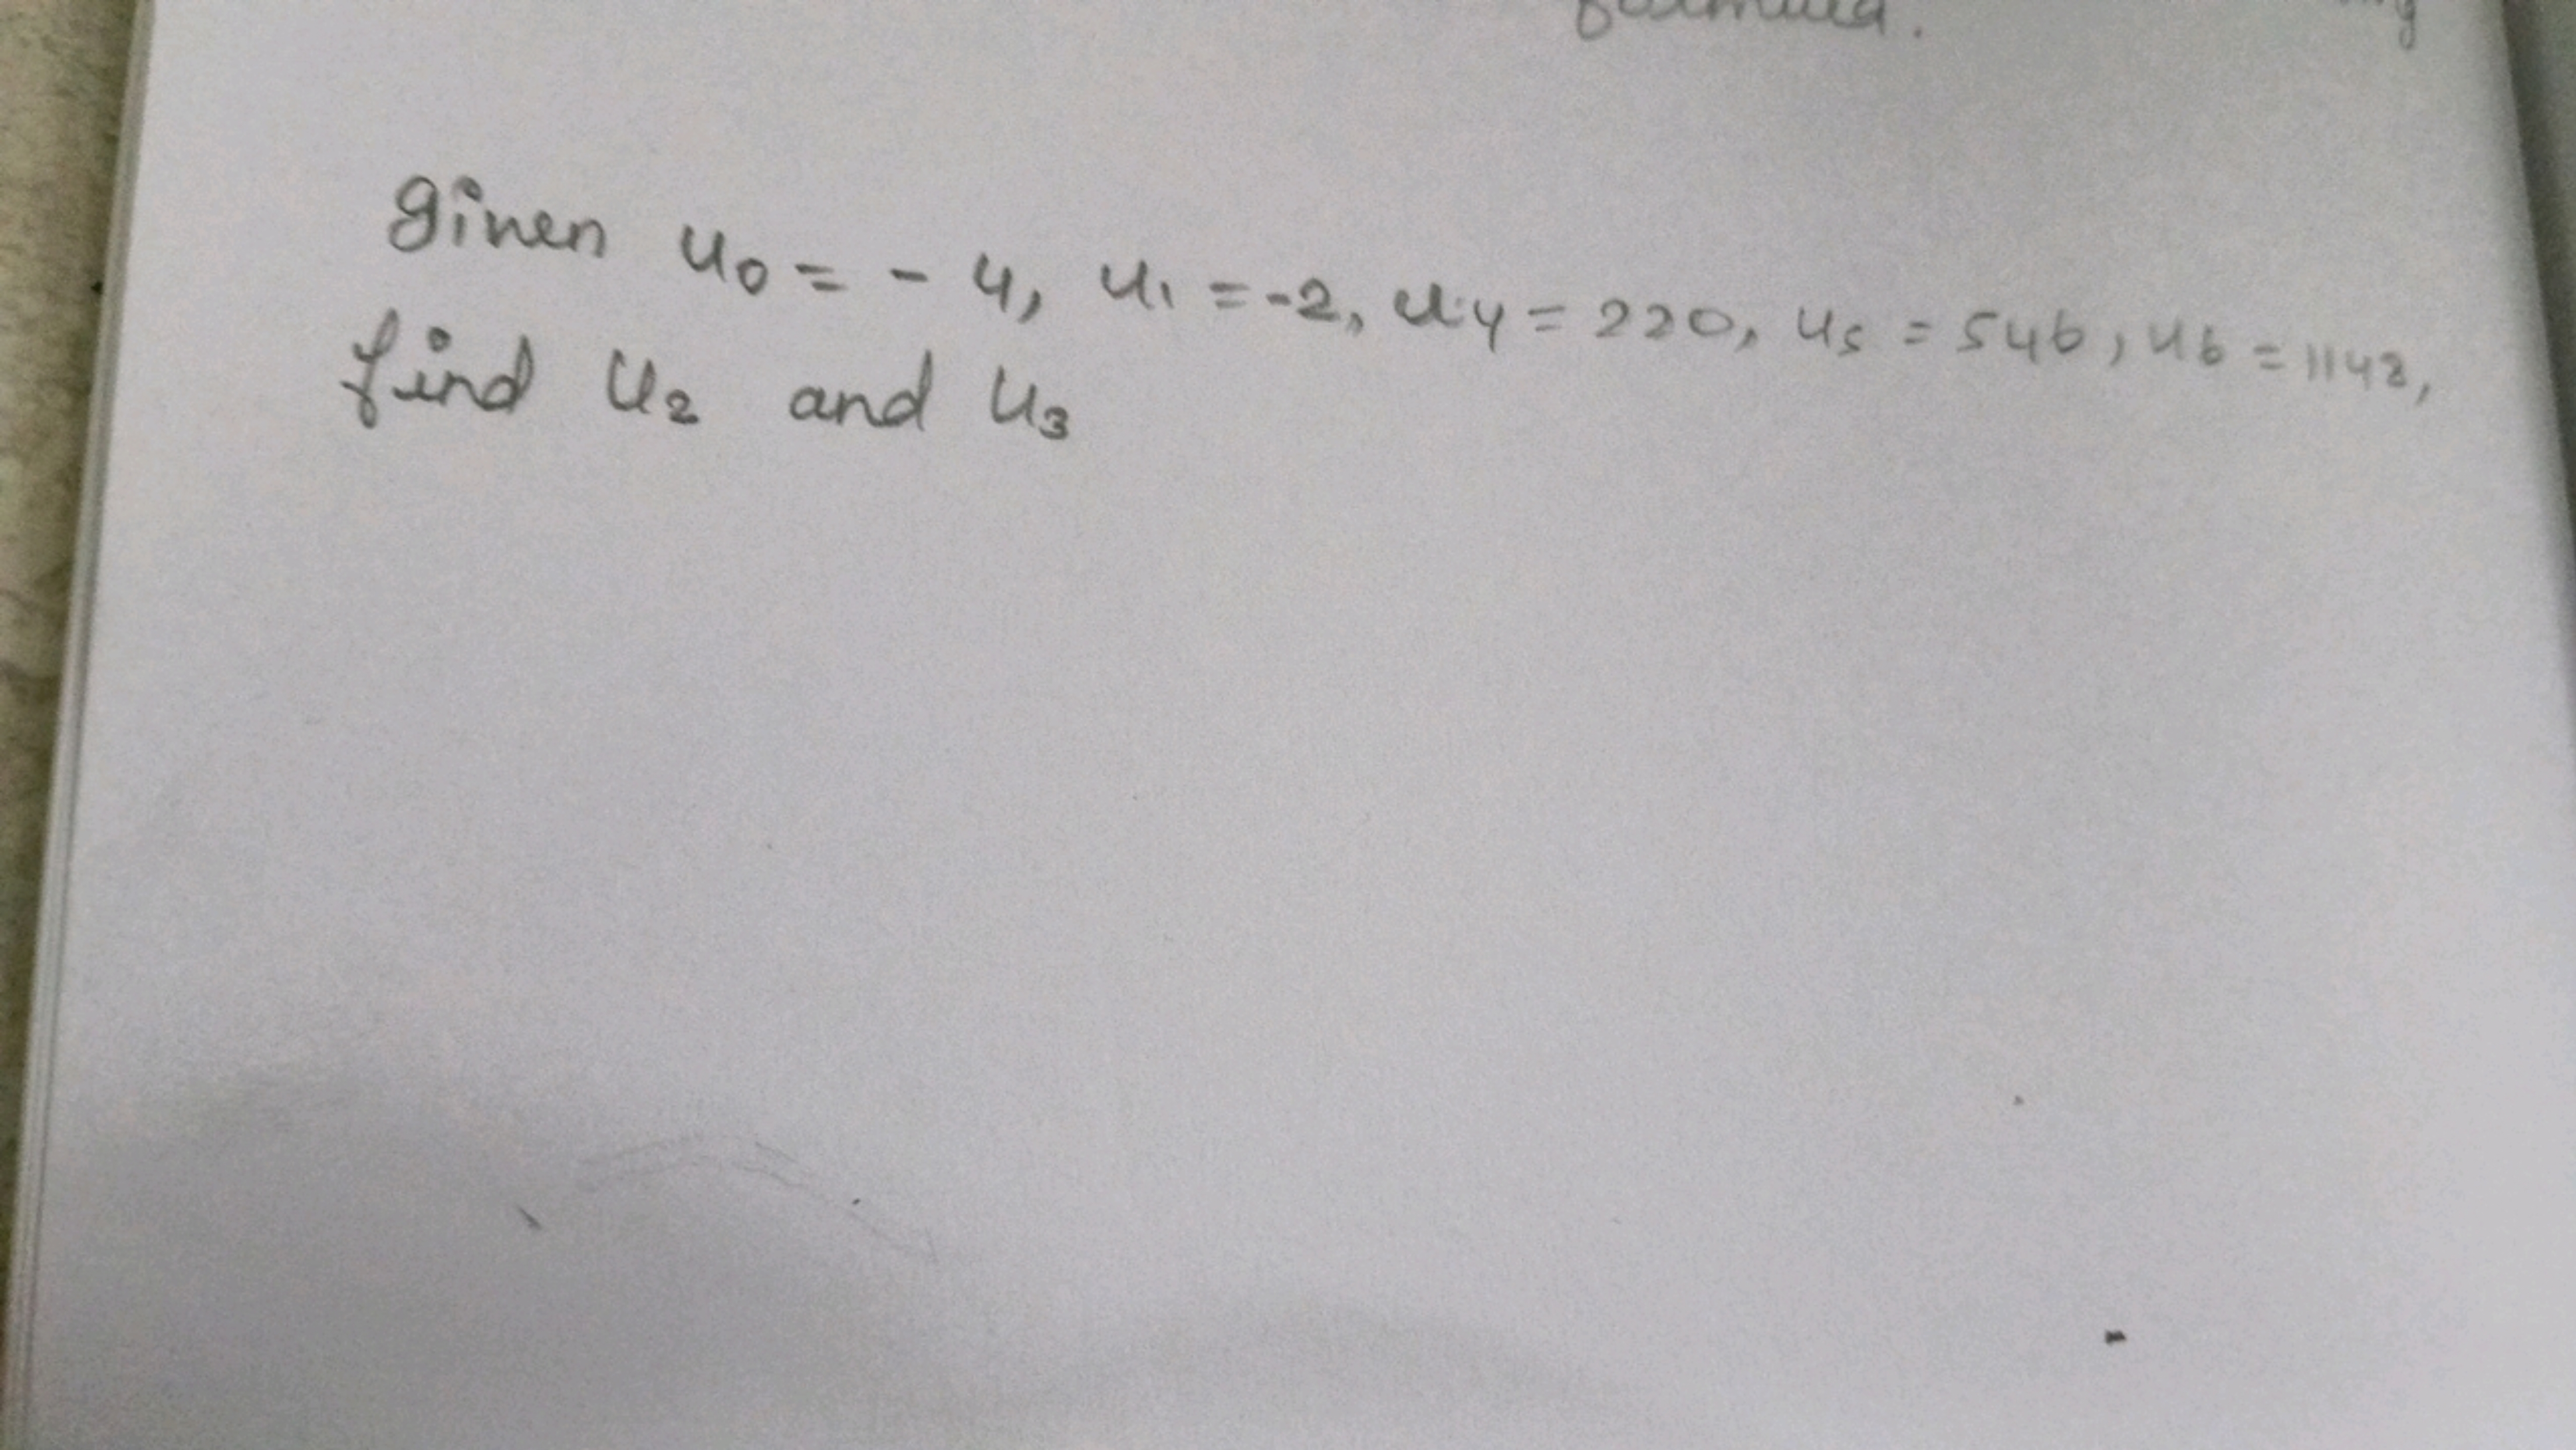 formula.
given u₀ = - 4, u₁ = -2, u₄ = 220, u₅ = 546, u₆ = 1148,
find u₂ and u₃